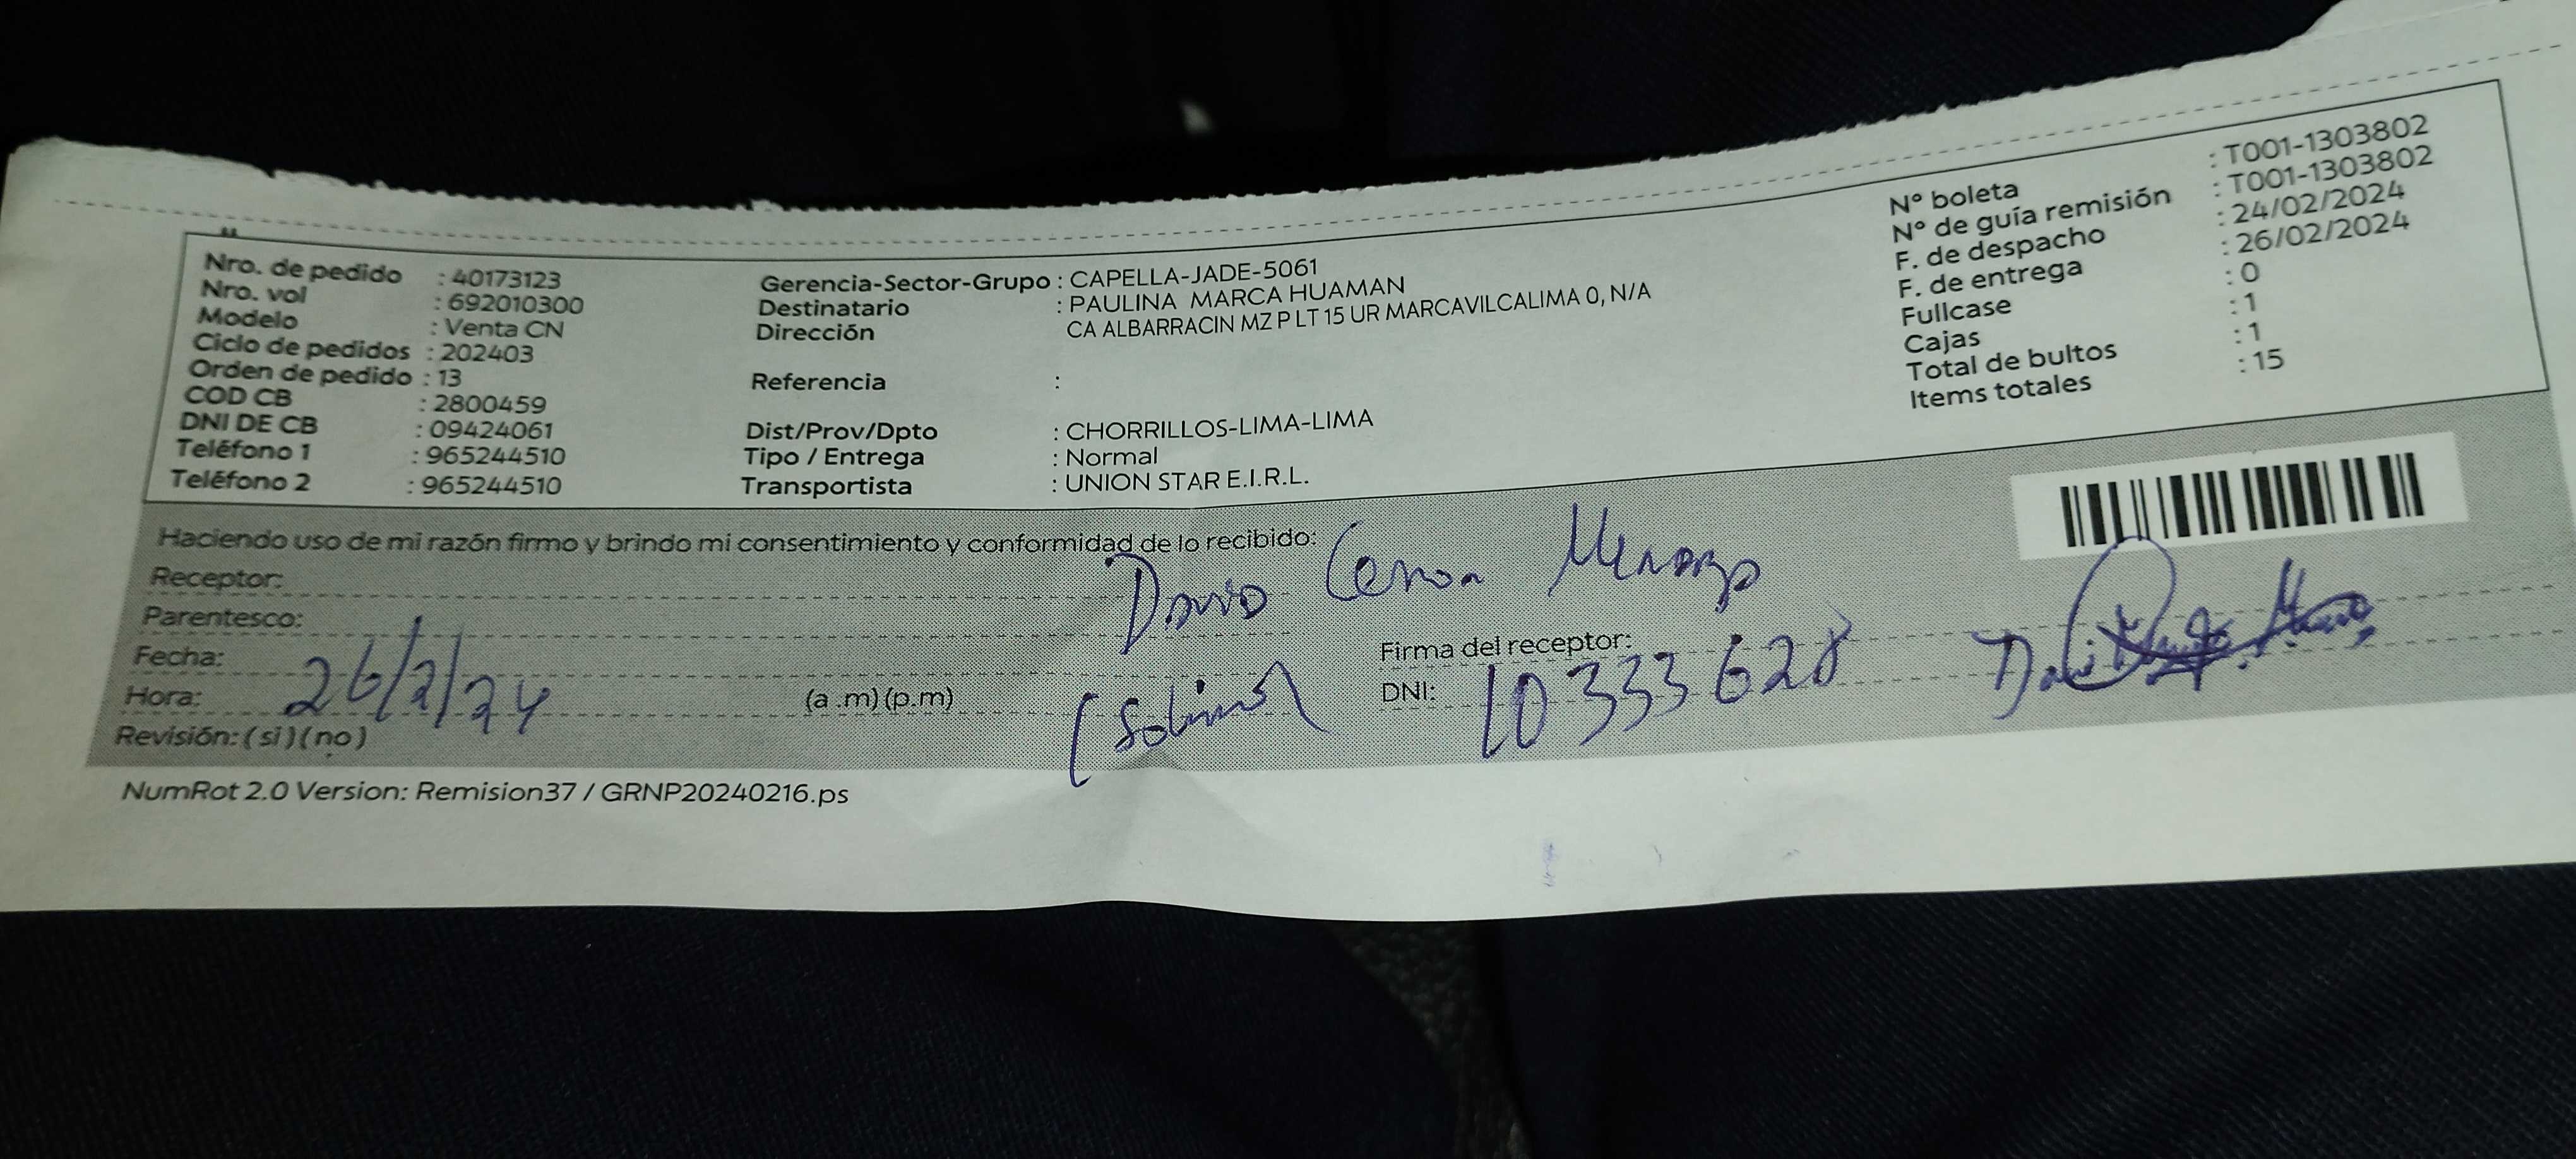 Nro. de pedido : 40173123
Nro. vol : 692010300
Modelo : Venta CN
Ciclo de pedidos : 202403
Orden de pedido : 13
COD CB : 2800459
DNI DE CB : 09424061
Teléfono 1 : 965244510
Teléfono 2 : 965244510
Gerencia-Sector-Grupo : CAPELLA-JADE-5061
Destinatario : PAULINA MARCA HUAMAN
Dirección CA ALBARRACIN MZ P LT 15 UR MARCAVILCALIMA 0, N/A
Referencia :
Dist/Prov/Dpto : CHORRILLOS-LIMA-LIMA
Tipo / Entrega : Normal
Transportista : UNION STAR E.I.R.L.
N° boleta : T001-1303802
N° de guía remisión : T001-1303802
F. de despacho : 24/02/2024
F. de entrega : 26/02/2024
Fullcase : 0
Cajas : 1
Total de bultos : 1
Items totales : 15
Haciendo uso de mi razón firmo y brindo mi consentimiento y conformidad de lo recibido:
Receptor:
Parentesco:
Fecha: 26/2/24
Hora: (a .m) (p.m)
Revisión: ( si ) ( no )
(Sobrino)
Firma del receptor:
DNI: 10333628
NumRot 2.0 Version: Remision37 / GRNP20240216.ps